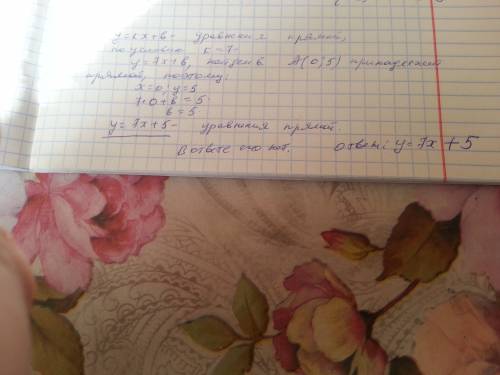 y=kx+b- уравнения прямой,
по условию k=7-
y=7x+b, найдем b A(0;5) принадлежит
прямой, поэтому:
x=0; y=5
7·0+b=5
b=5
y=7x+5- уравнения прямой.
В ответе его нет. Ответ: y=7x+5